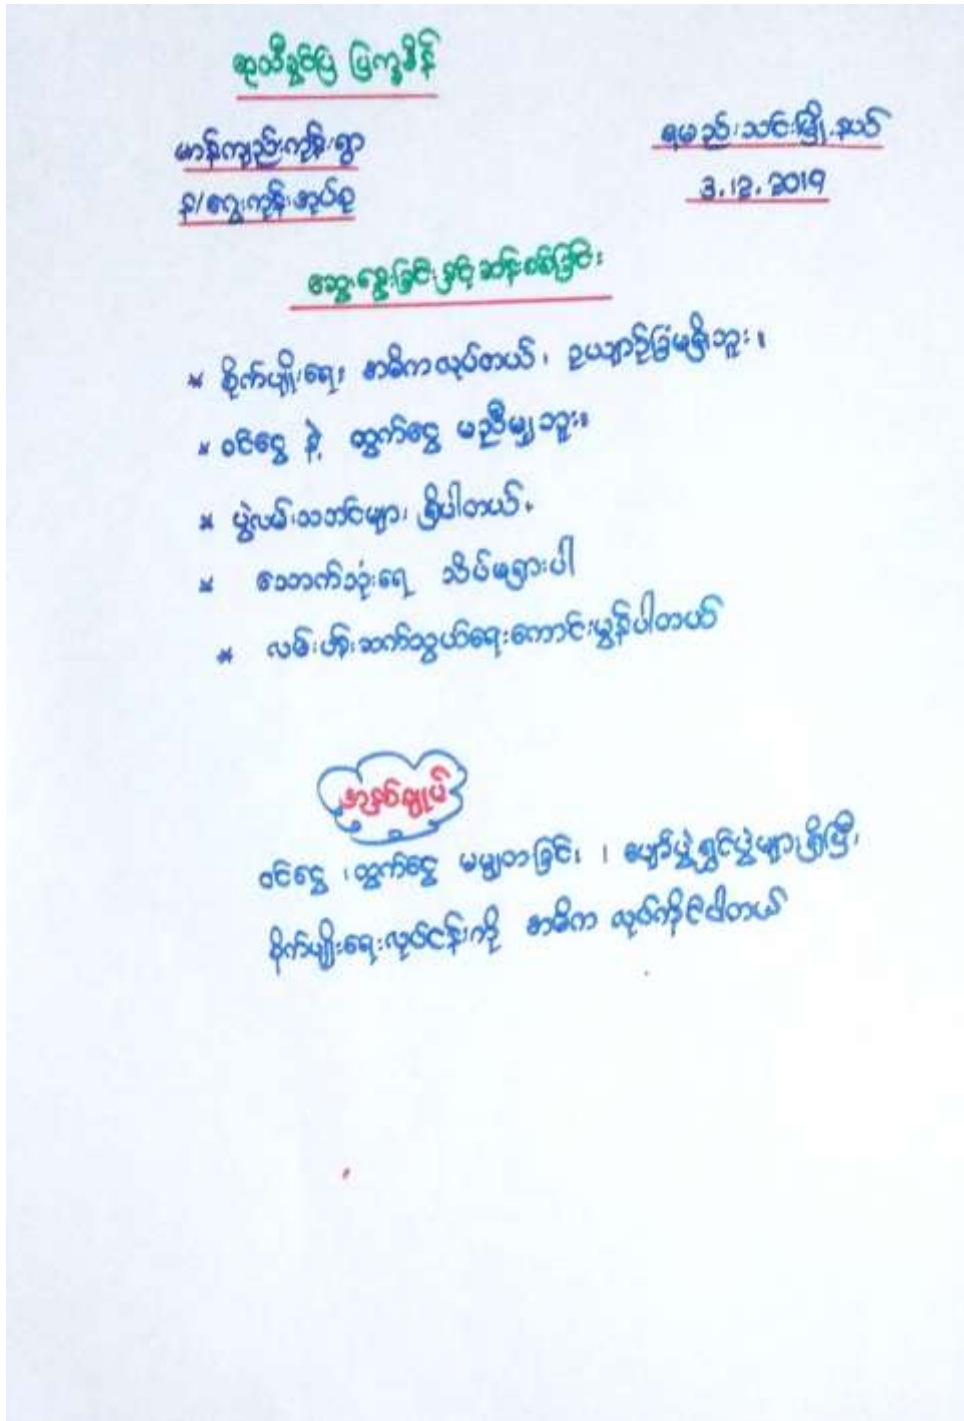 ရာသီခွင်ပြ ပြက္ခဒိန်
မာန်ကျည်းကုန်းရွာ
ရမည်းသင်းမြို့နယ်
န/ဂွေးကုန်းအုပ်စု
3.12.2019
ဆွေးနွေးခြင်းနှင့်ဆန်းစစ်ခြင်း
* စိုက်ပျိုးရေး အဓိကလုပ်တယ်၊ ဥယျာဉ်ခြံမရှိဘူး။
* ဝင်ငွေ နဲ့ ထွက်ငွေ မညီမျှဘူး။
* ပွဲလမ်းသဘင်များ ရှိပါတယ်။
* သောက်သုံးရေ သိပ်မရှားပါ
* လမ်းပန်းဆက်သွယ်ရေးကောင်းမွန်ပါတယ်
အနှစ်ချုပ်
ဝင်ငွေ ၊ထွက်ငွေ မမျှတခြင်း ၊ ပျော်ပွဲရွှင်ပွဲများရှိပြီး
စိုက်ပျိုးရေးလုပ်ငန်းကို အဓိက လုပ်ကိုင်ပါတယ်